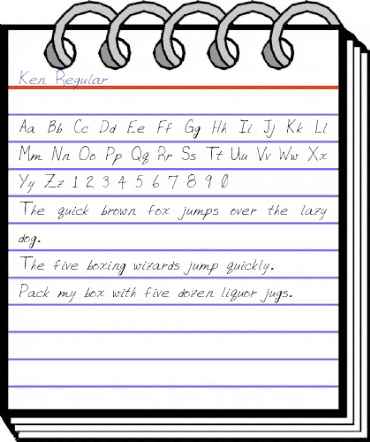 Ken Regular
Aa Bb Cc Dd Ee Ff Gg Hh Ii Jj Kk Ll
Mm Nn Oo Pp Qq Rr Ss Tt Uu Vv Ww Xx
Yy Zz 1 2 3 4 5 6 7 8 9 0
The quick brown fox jumps over the lazy
dog.
The five boxing wizards jump quickly.
Pack my box with five dozen liquor jugs.